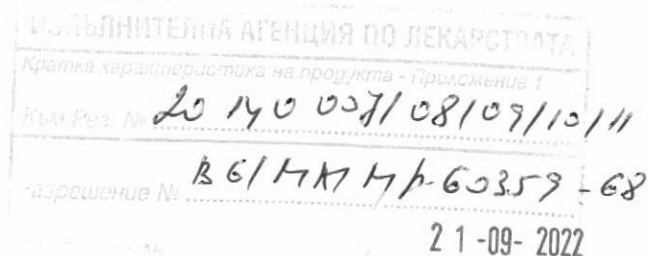 ИЗПЪЛНИТЕЛНА АГЕНЦИЯ ПО ЛЕКАРСТВАТА
Кратка характеристика на продукта - Приложение 1
Към Рег. № 20140007/08/09/10/11
Разрешение № BG/MA/MP-60359-68
21-09-2022
№